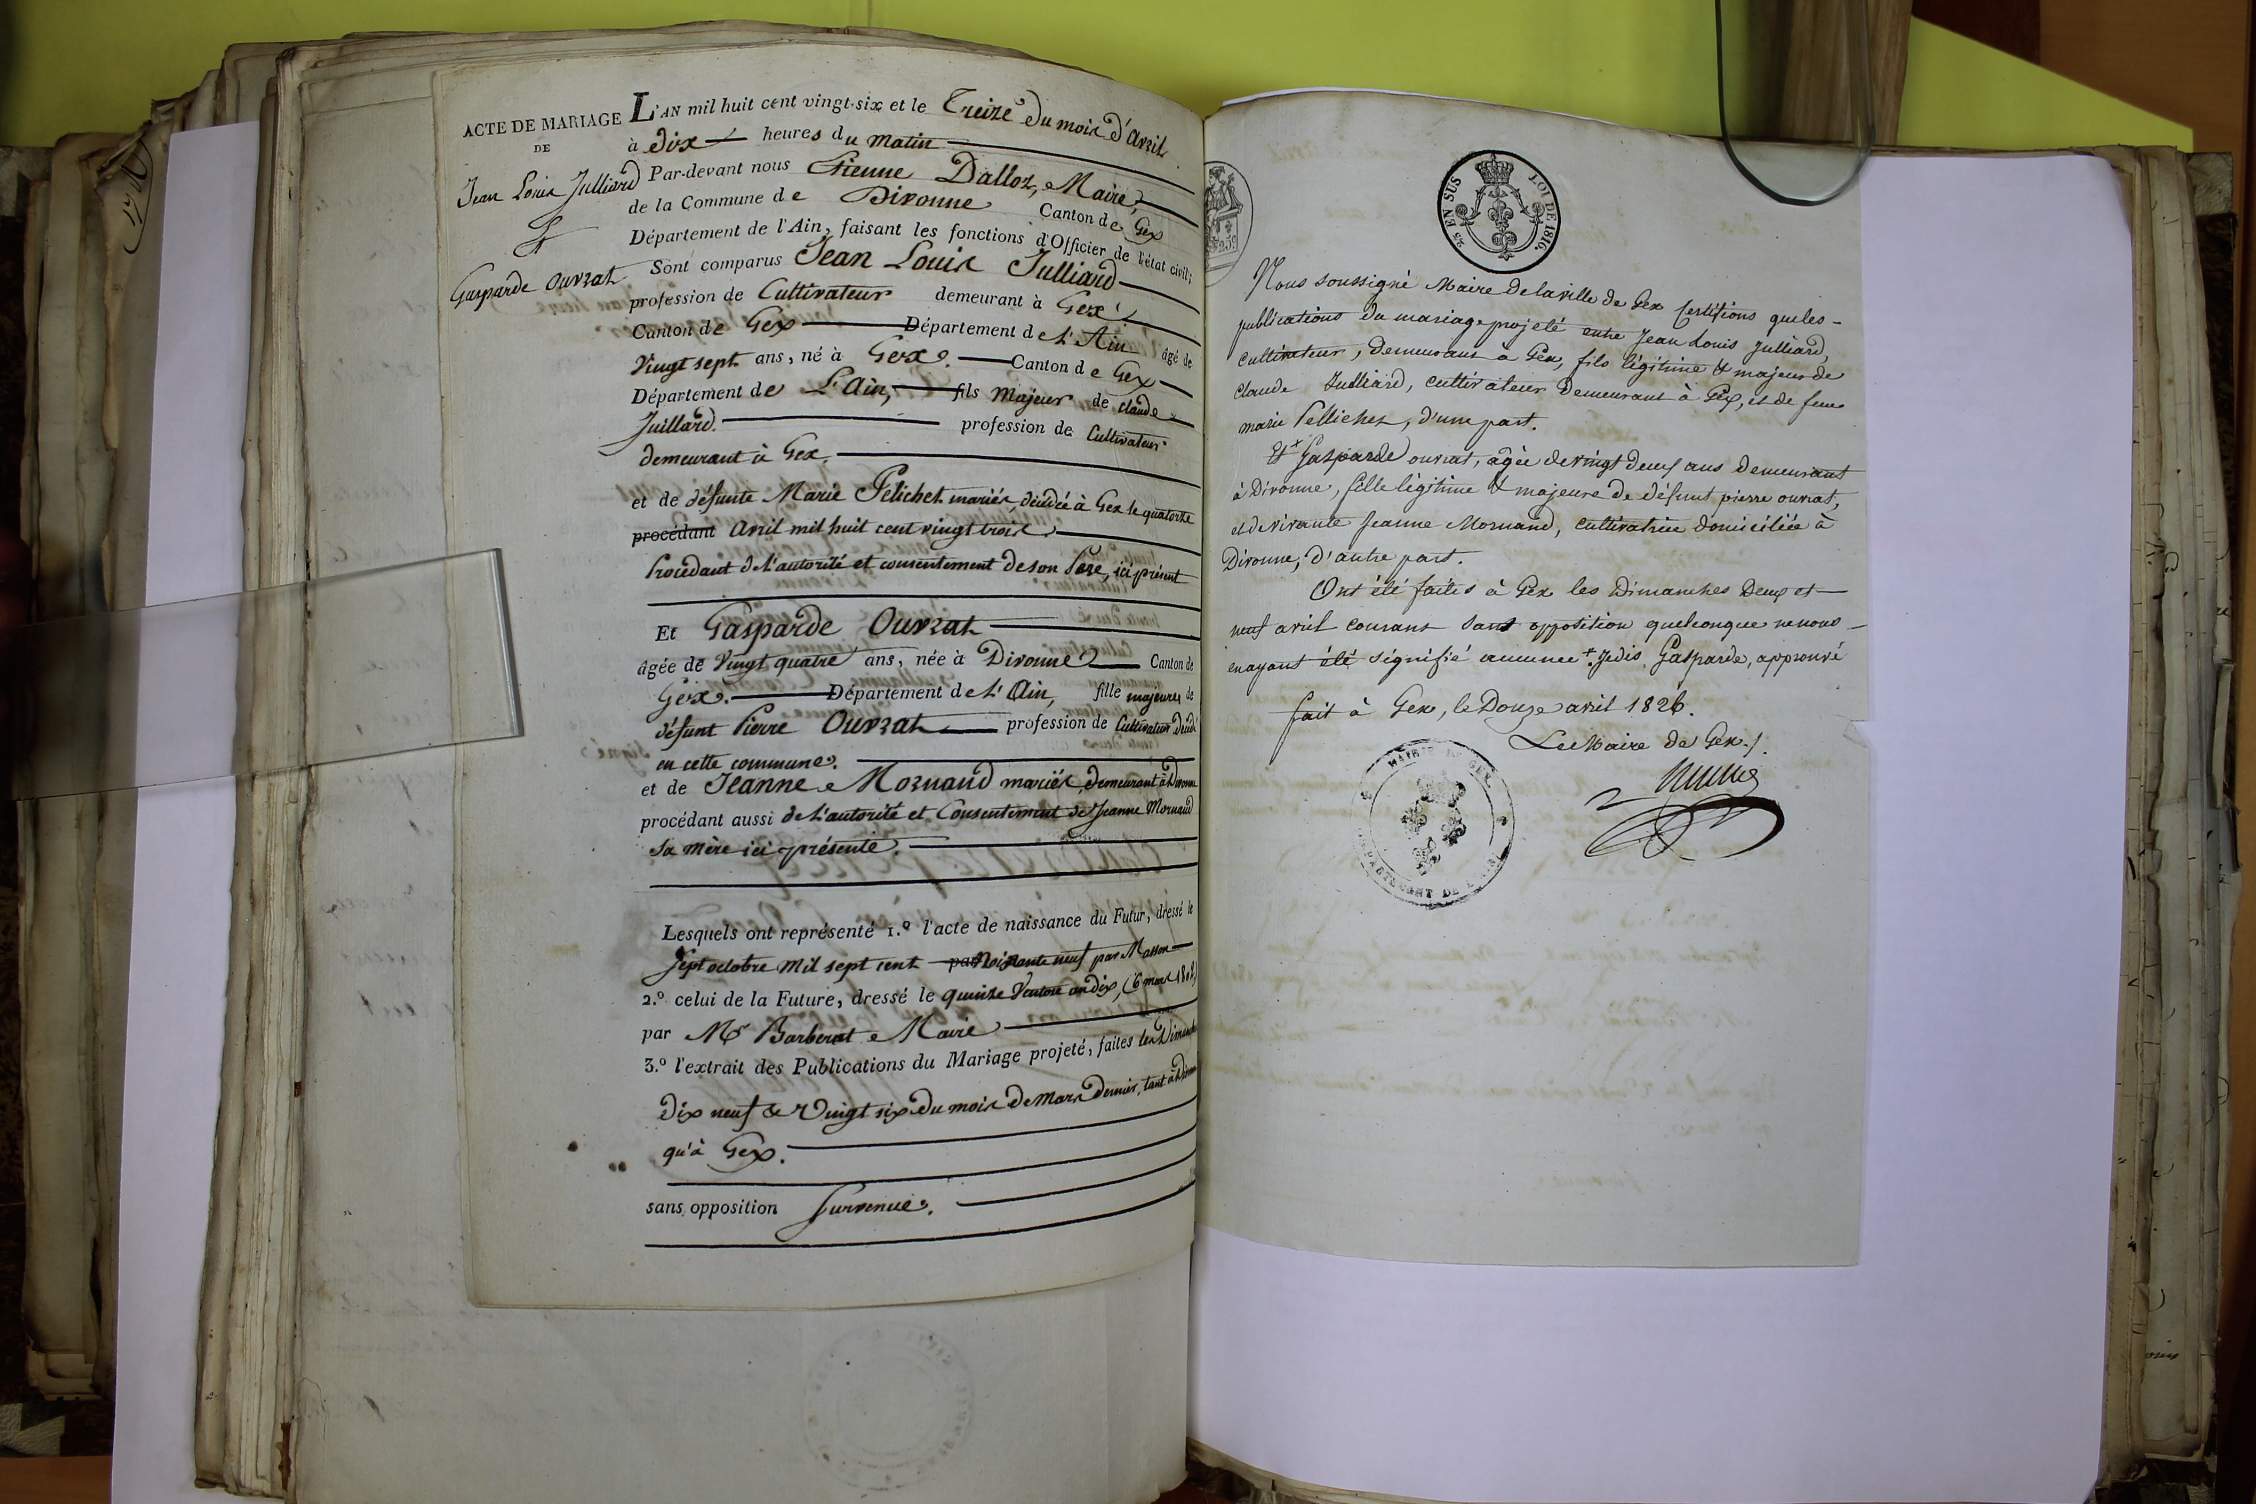 ACTE DE MARIAGE
DE
Jean Louis Julliard
&
Gasparde Ouvrat
L'AN mil huit cent vingt-six et le Treize du mois d'Avril
à dix heures du matin
Par-devant nous Etienne Dalloz, Maire,
de la Commune de Divonne Canton de Gex
Département de l'Ain, faisant les fonctions d'Officier de l'état civil;
Sont comparus Jean Louis Julliard
profession de Cultivateur demeurant à Gex
Canton de Gex Département de L'Ain âgé de
Vingt sept ans, né à Gex. Canton de Gex
Département de L'Ain, fils Majeur de Claude
Juillard. profession de Cultivateur
demeurant à Gex,
et de défunte Marie Pelichet mariés, décédée à Gex le quatorze
procédant Avril mil huit cent vingt trois
Procédant de l'autorité et consentement de son Père, ici présent
Et Gasparde Ouvrat
âgée de Vingt quatre ans, née à Divonne Canton de
Gex. Département de L'Ain, fille majeure de
défunt Pierre Ouvrat profession de Cultivateur décédé
en cette commune.
et de Jeanne Mornand mariés, demeurant à Divonne
procédant aussi de L'autorité et Consentement de Jeanne Mornand
sa mère ici présente.
Lesquels ont représenté 1.º l'acte de naissance du Futur, dressé le
Sept octobre mil sept cent par Nonante neuf par Masson
2.º celui de la Future, dressé le quinze Ventose an dix, (6 mars 1802)
par Mr Barberat Maire
3.º l'extrait des Publications du Mariage projeté, faites les Dimanches
Dix neuf & Vingt six du mois de Mars dernier, tant à Divonne
qu'à Gex.
sans opposition Survenue.
25 EN SUS LOI DE 1816.
Nous soussigné Maire de la ville de Gex Certifions que les
publications du mariage projeté entre Jean Louis Julliard,
cultivateur, demeurant à Gex, fils légitime & majeur de
Claude Julliard, cultivateur demeurant à Gex, et de feue
marie Pellichet, d'une part.
Et + Gasparde ouvrat, agée de vingt deux ans demeurant
à Divonne, fille légitime & majeure de défunt pierre ouvrat,
et de vivante Jeanne Mornand, cultivatrice domiciliée à
Divonne, d'autre part.
Ont été faites à Gex les Dimanches Deux et
neuf avril courant sans opposition quelconque ne nous
en ayant été signifié aucunee +. Je dis Gasparde, approuvé
fait à Gex, le Douze avril 1826.
Le Maire de Gex.
MAIRIE DE GEX
DÉPARTEMENT DE L'AIN